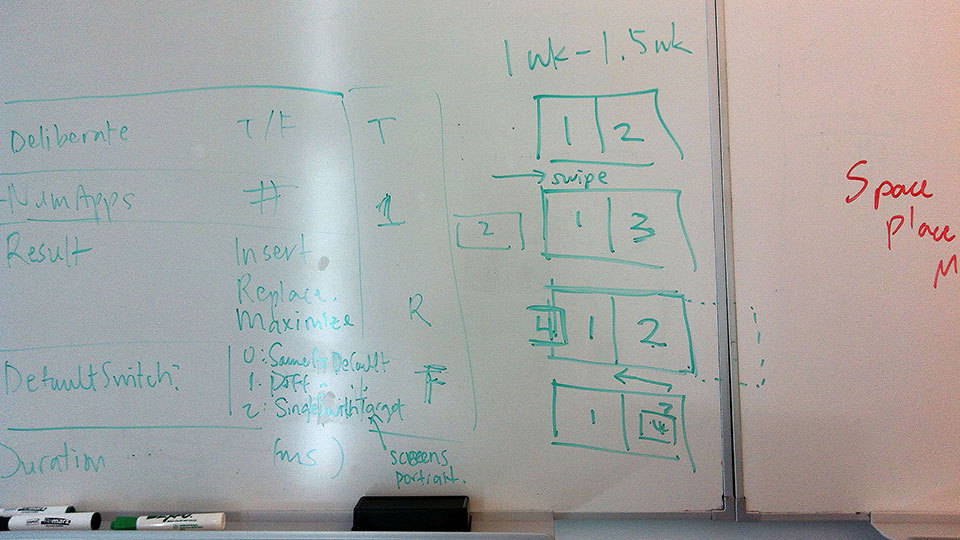 1 wk - 1.5 wk
Deliberate T/F T
NumApps # 1
Result Insert
Replace
Maximize R
DefaultSwitch?
0: Same
1: Diff
2: Single with Target
F
Duration (ms)
screens
portrait.
1 2
swipe
2 1 3
4 1 2
1
Space
place
M